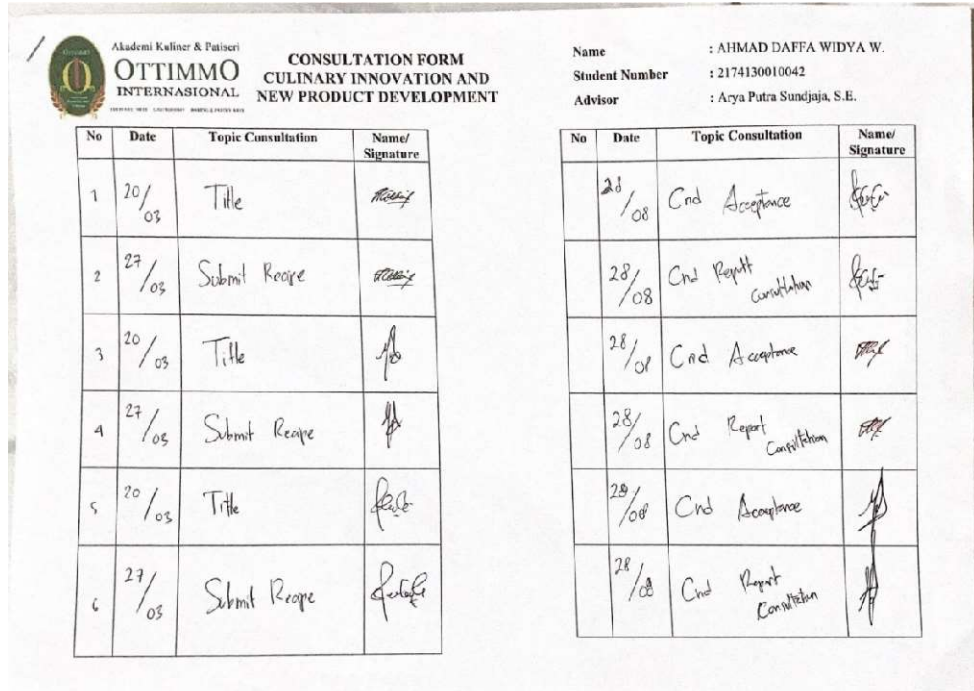 Akademi Kuliner & Patiseri
OTTIMMO
INTERNASIONAL
CONSULTATION FORM
CULINARY INNOVATION AND
NEW PRODUCT DEVELOPMENT
Name : AHMAD DAFFA WIDYA W.
Student Number : 2174130010042
Advisor : Arya Putra Sundjaja, S.E.
No Date Topic Consultation Name/
Signature
1 20/03 Title
2 27/03 Submit Recipe
3 20/03 Title
4 27/03 Submit Recipe
5 20/03 Title
6 27/03 Submit Recipe
No Date Topic Consultation Name/
Signature
28/08 Cnd Acceptance
28/08 Cnd Report
Consultation
28/08 Cnd Acceptance
28/08 Cnd Report
Consultation
28/08 Cnd Acceptance
28/08 Cnd Report
Consultation